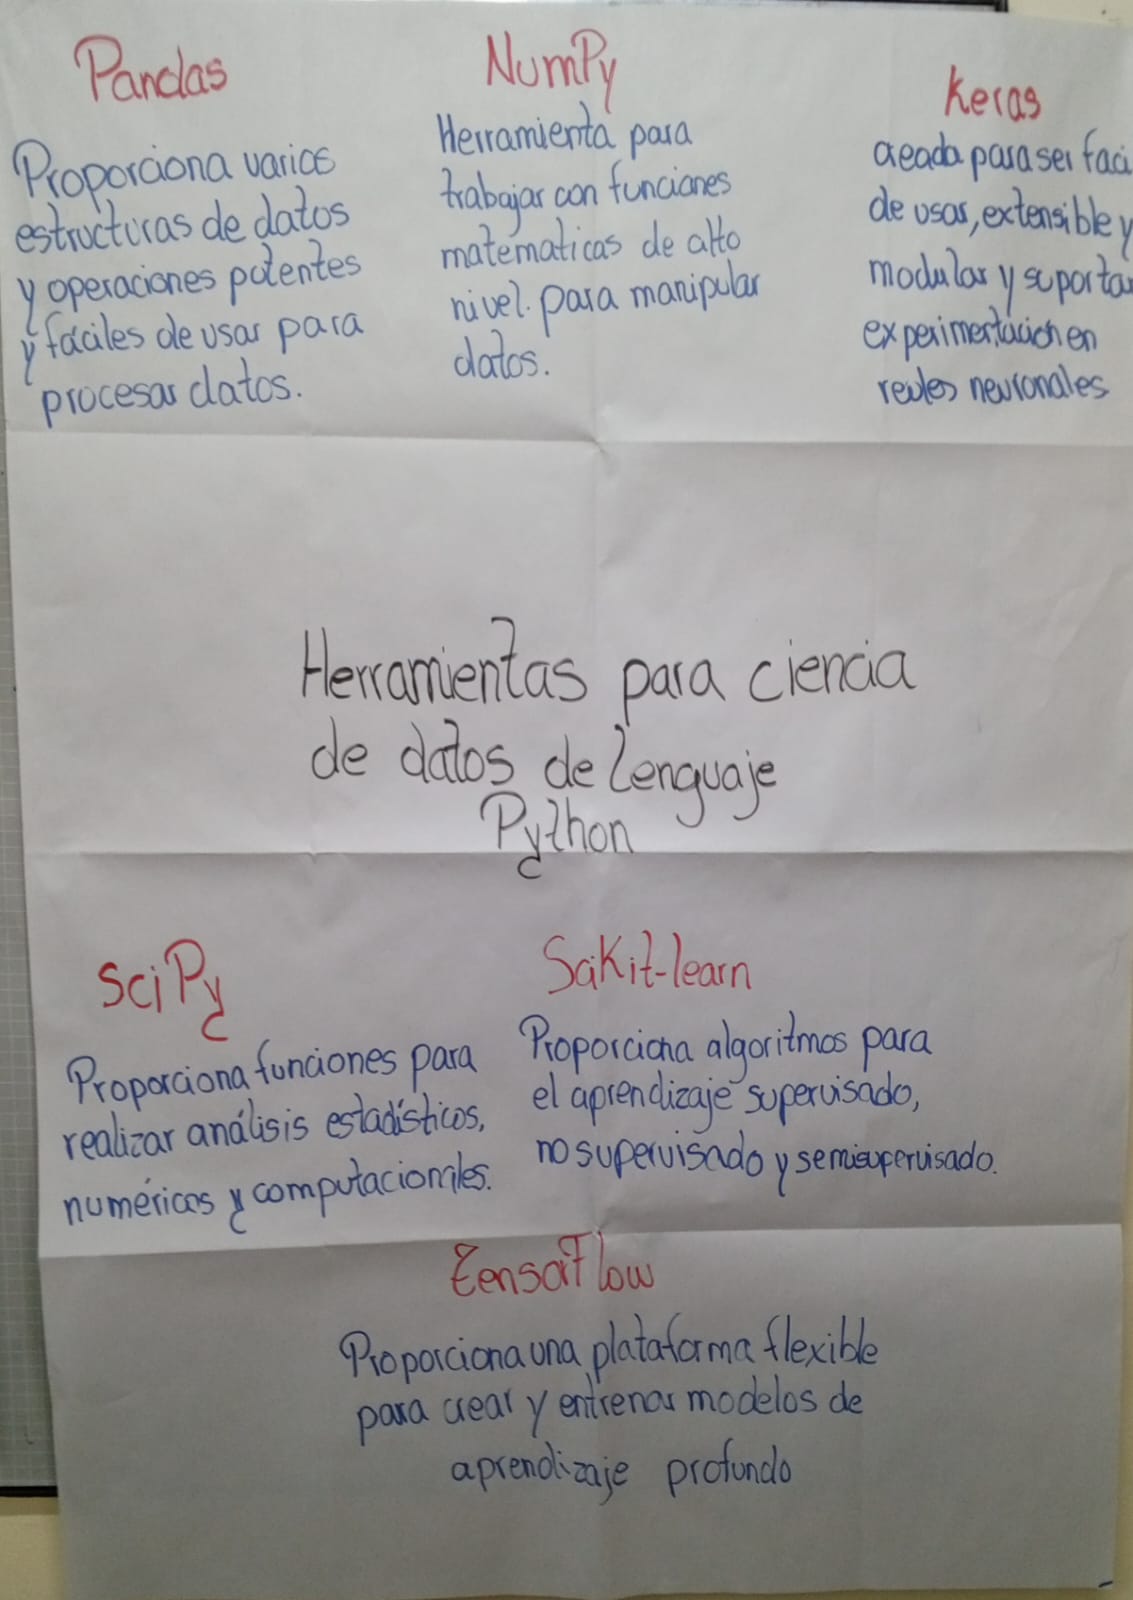 Pandas
Proporciona varias
estructuras de datos
y operaciones potentes
y fáciles de usar para
procesar datos.
NumPy
Herramienta para
trabajar con funciones
matematicas de alto
nivel. para manipular
datos.
Keras
creada para ser faci
de usar, extensible y
modular y suportar
experimentacion en
redes neuronales
Herramientas para ciencia
de datos de lenguaje
Python
SciPy
Proporciona funciones para
realizar análisis estadísticos,
numéricos y computacionales.
Scikit-learn
Proporciona algoritmos para
el aprendizaje supervisado,
no supervisado y semisupervisado.
TensorFlow
Proporciona una plataforma flexible
para crear y entrenar modelos de
aprendizaje profundo